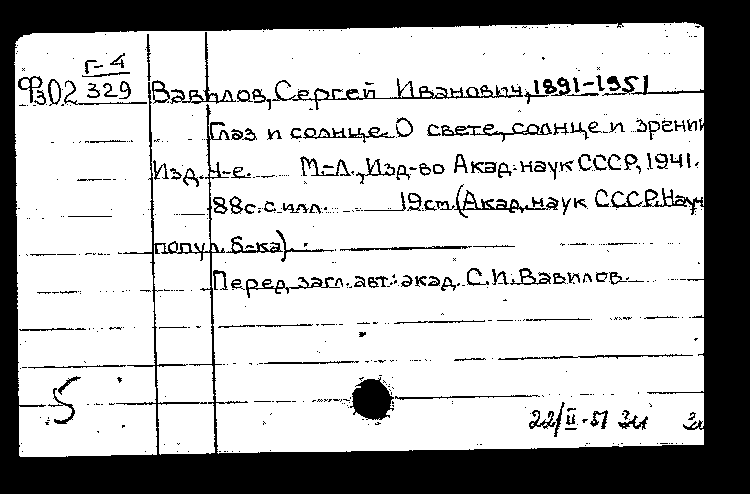 Г-4
Ф302 329 Вавилов, Сергей Иванович, 1891-1951
Глаз и солнце. О свете, солнце и зрении
Изд. 4-е. М.-Л., Изд-во Акад. наук СССР, 1941.
88 с. с илл. 19 см. (Акад. наук СССР. Науч
попул. б-ка).
Перед загл. авт.: акад. С. И. Вавилов.
5
22/II-51